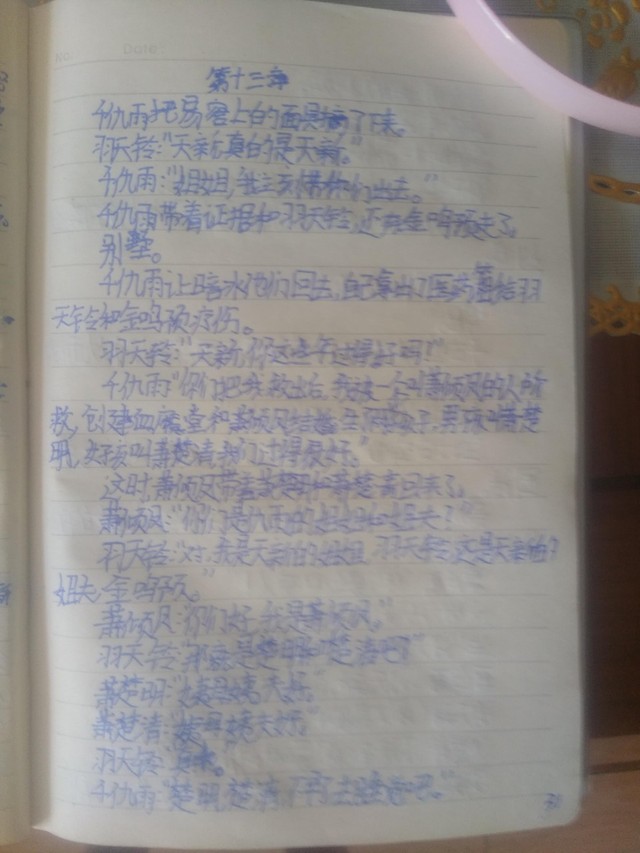 No.
Date
第十三章
千仇雨把易容上的面具摘了下来。
羽天铃:"天新,真的是天新。"
千仇雨:"姐姐,我立刻带你们出去。"
千仇雨带着证据和羽天铃,还有金鸣预走了
别墅。
千仇雨让暗水他们回去,自己拿出了医药箱给羽
天铃和金鸣预疗伤。
羽天铃:"天新,你这些年过得好吗?"
千仇雨:"你们把我救出后,我被一个叫萧倾风的人所
救,创建血 和萧倾风结 孩子,男孩叫萧楚
明,女孩叫萧楚清,我们过得很好。"
这时,萧倾风带着萧楚明和萧楚清回来了。
萧倾风:"你们是仇雨的姐姐和姐夫?"
羽天铃:"对,我是天新的姐姐 羽天铃,这是天新的
姐夫,金鸣预。"
萧倾风:"你们好,我是萧倾风。"
羽天铃:"那 是楚明和楚清吧?"
萧楚明:"姨母,姨夫好。
萧楚清:"姨母,姨夫好。
羽天铃:
千仇雨:"楚明,楚清,
30